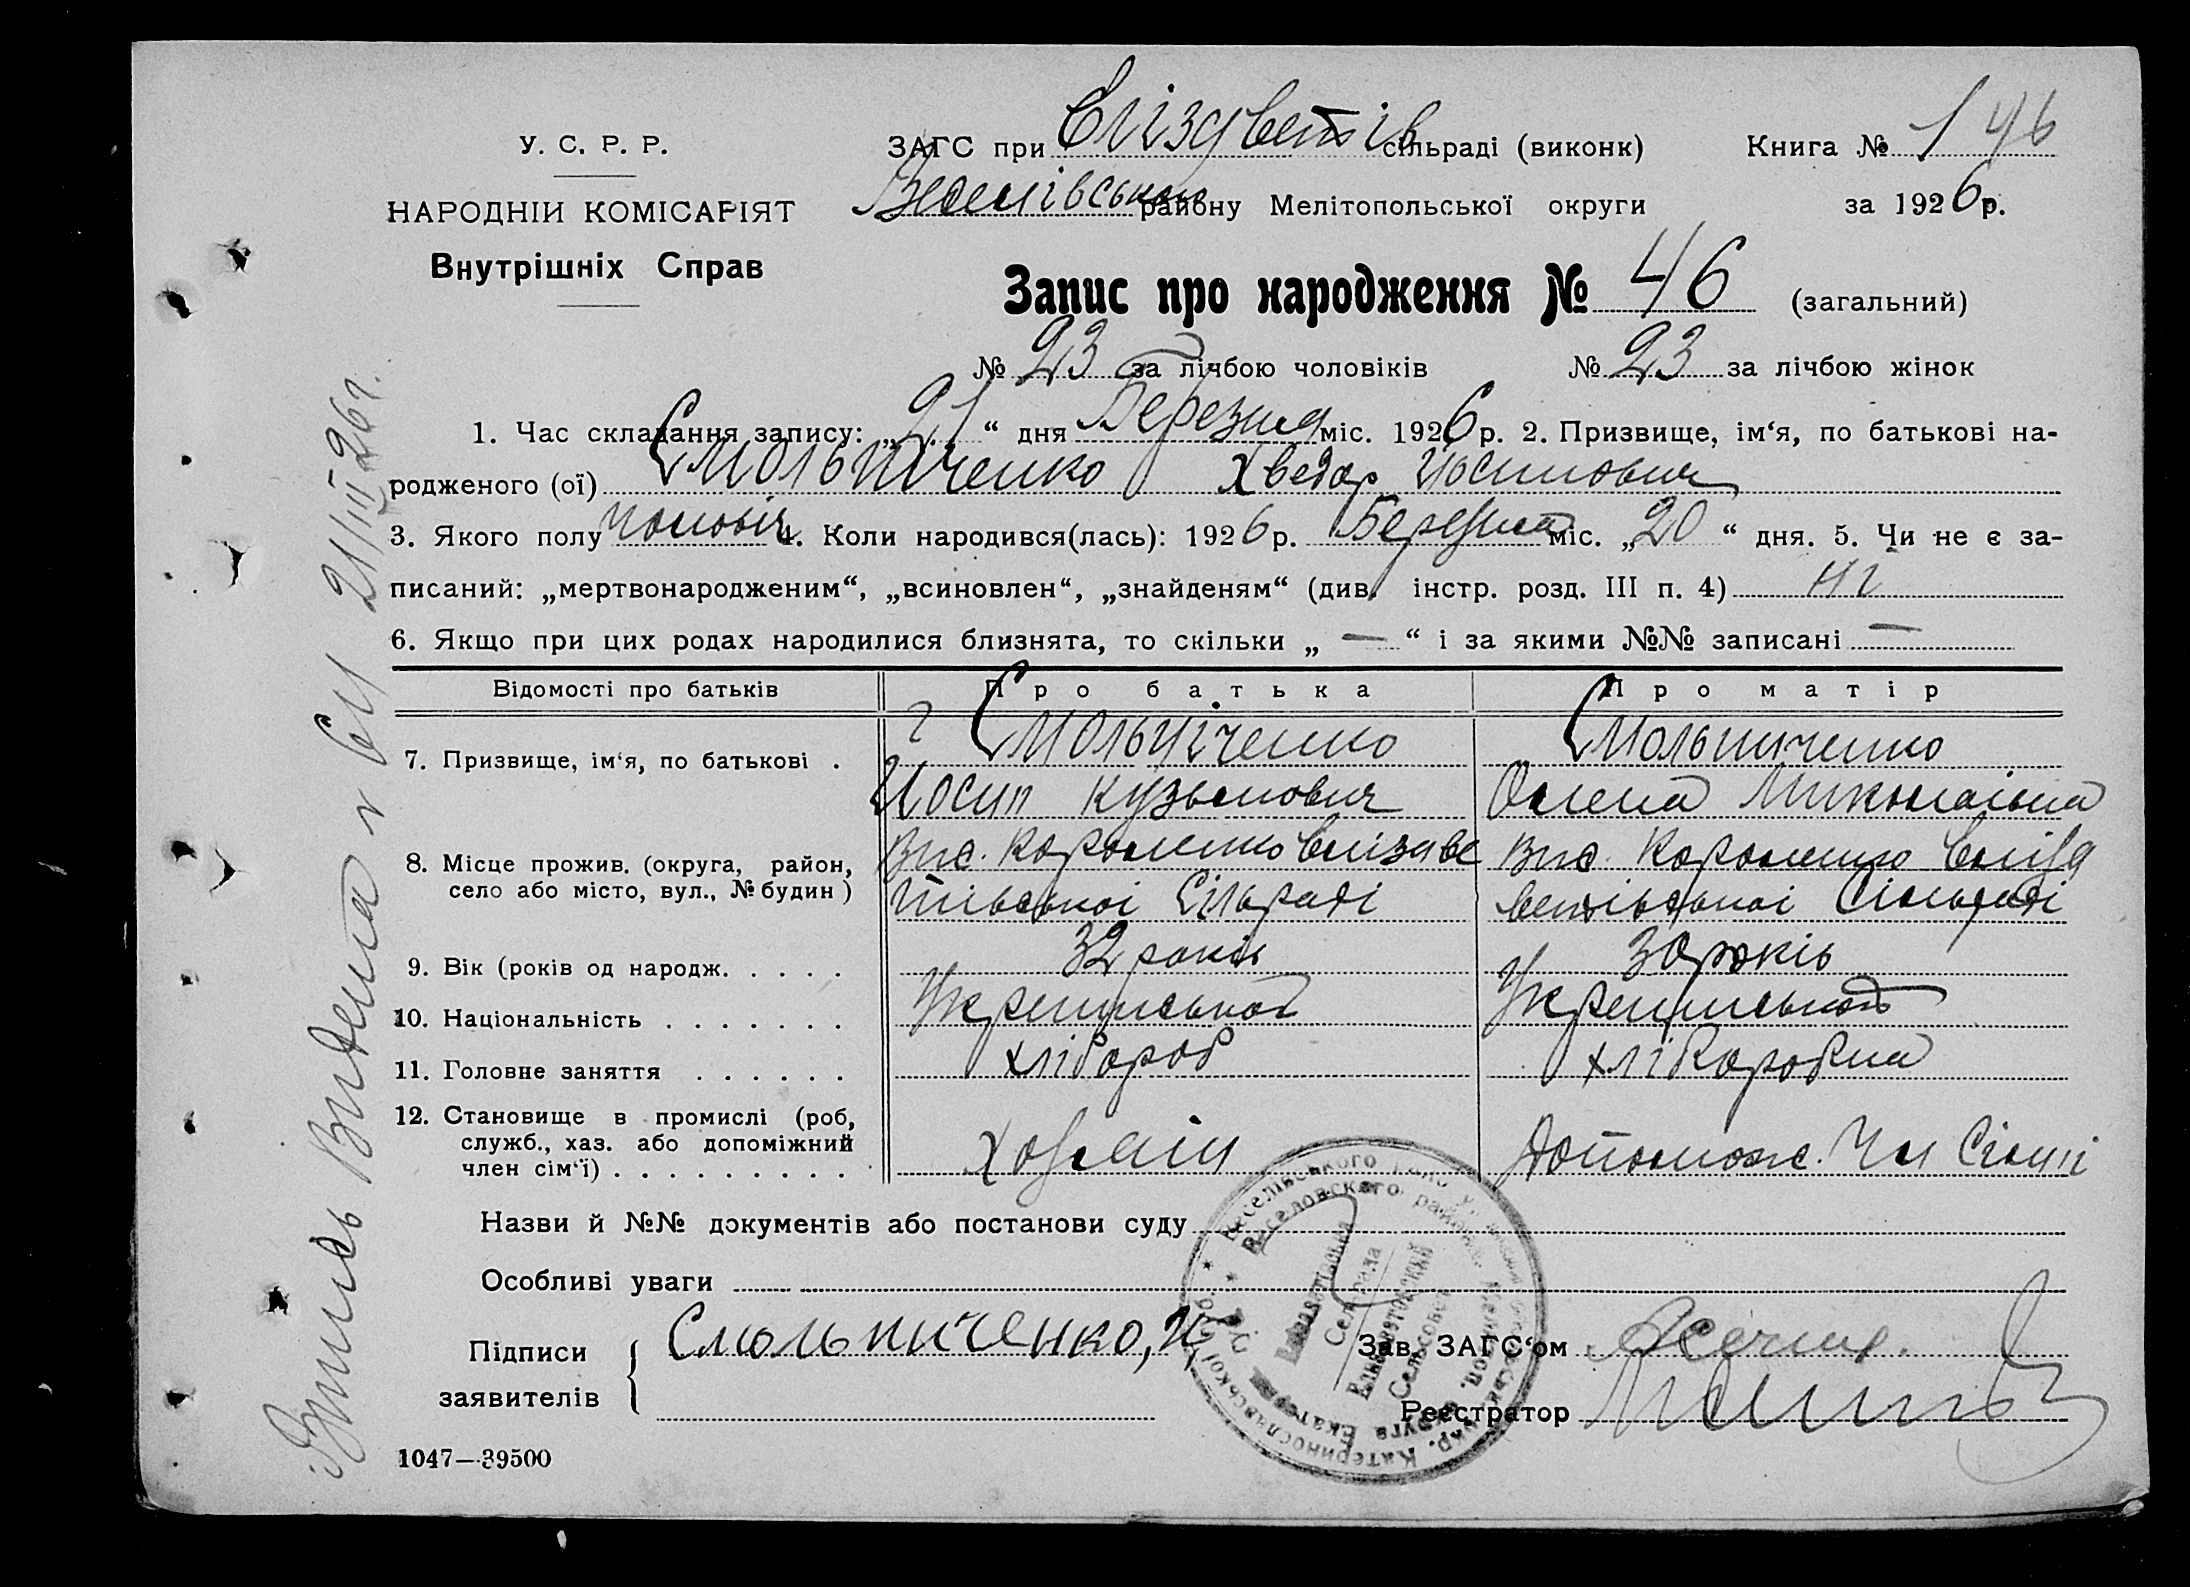 У. С. Р. Р.
НАРОДНІЙ КОМІСАРІЯТ
Внутрішніх Справ
ЗАГС при Єлізаветів сільраді (виконк) Книга № 1 46
Веселівськ району Мелітопольської округи за 1926 р.
Запис про народження № 46 (загальний)
№ 23 за лічбою чоловіків № 23 за лічбою жінок
1. Час складання запису: „21“ дня Березня міс. 1926 р. 2. Призвище, ім‘я, по батькові на-
родженого (ої) Смольниченко Хведор Иосипович
3. Якого полу чоловіч 4. Коли народився(лась): 1926 р. Березня міс. „20“ дня. 5. Чи не є за-
писаний: „мертвонародженим“, „всиновлен“, „знайденям“ (див. інстр. розд. III п. 4) ні
6. Якщо при цих родах народилися близнята, то скільки „ — “ і за якими №№ записані —
Відомості про батьків Про батька Про матір
7. Призвище, ім‘я, по батькові . Смольніченко Смольниченко
Иосип Кузьмович Олена Миколаівна
8. Місце прожив. (округа, район, село або місто, вул., № будин) Вис. Короленко Єлізаве Вис. Короленко Єліза
тівської Сільраді ветівської Сільраді
9. Вік (років од народж. . . . . 32 років 30 років
10. Національність . . . . . . . Українська Українська
11. Головне заняття . . . . . . хлібороб хліборобка
12. Становище в промислі (роб, служб., хаз. або допоміжний член сім‘ї) . . . . . . . . . Хозяін Допомож. Чл Сімії
Назви й №№ документів або постанови суду
Особливі уваги
Підписи заявителів Смольниченко, И,
Зав. ЗАГС‘ом
Реєстратор
1047—39500
Випись Видана 21/III 26 г.